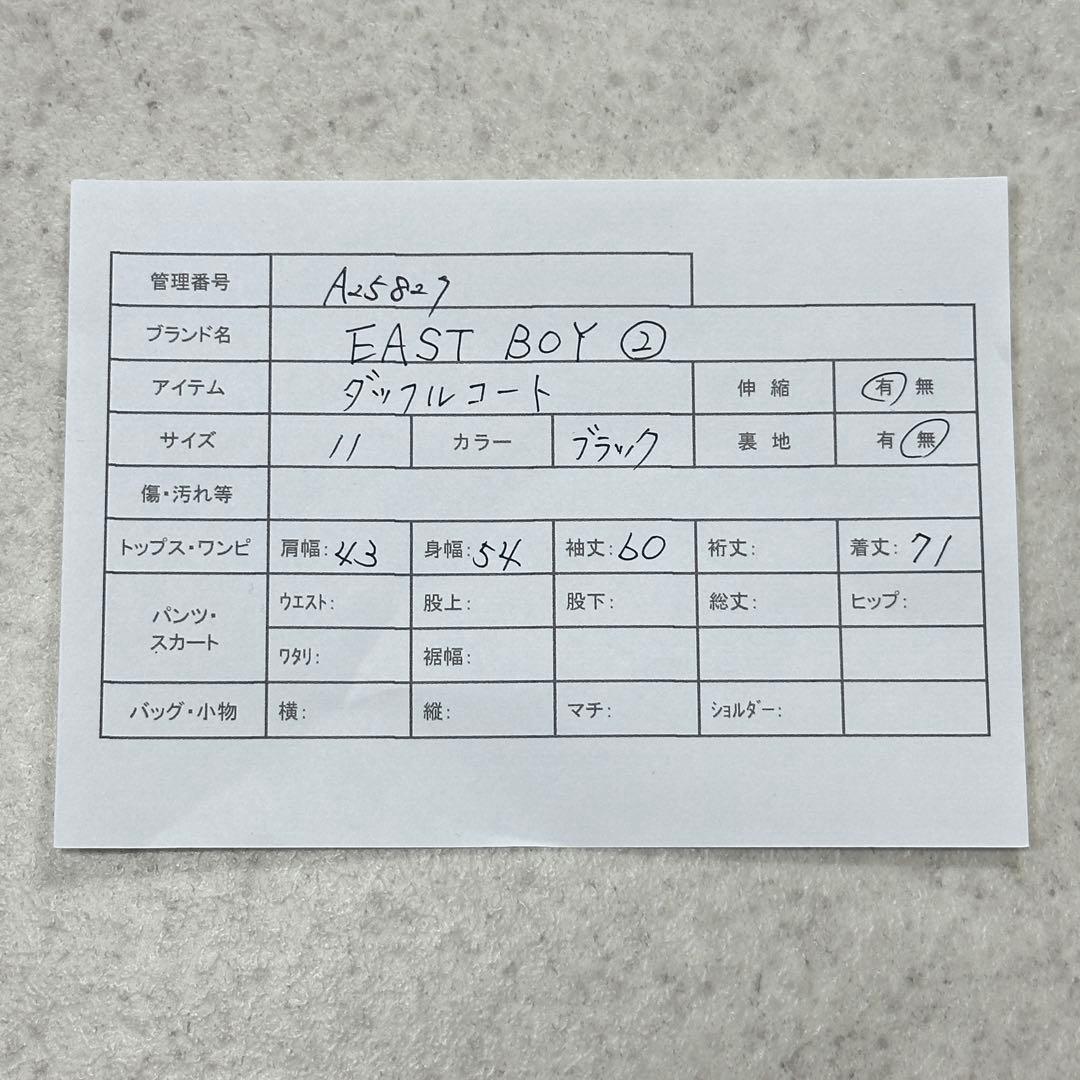 管理番号 A25827
ブランド名 EAST BOY ②
アイテム ダッフルコート 伸縮 有 無
サイズ 11 カラー ブラック 裏地 有 無
傷・汚れ等
トップス・ワンピ 肩幅:43 身幅:54 袖丈:60 裄丈: 着丈:71
パンツ・スカート ウエスト: 股上: 股下: 総丈: ヒップ:
ワタリ: 裾幅:
バッグ・小物 横: 縦: マチ: ショルダー: